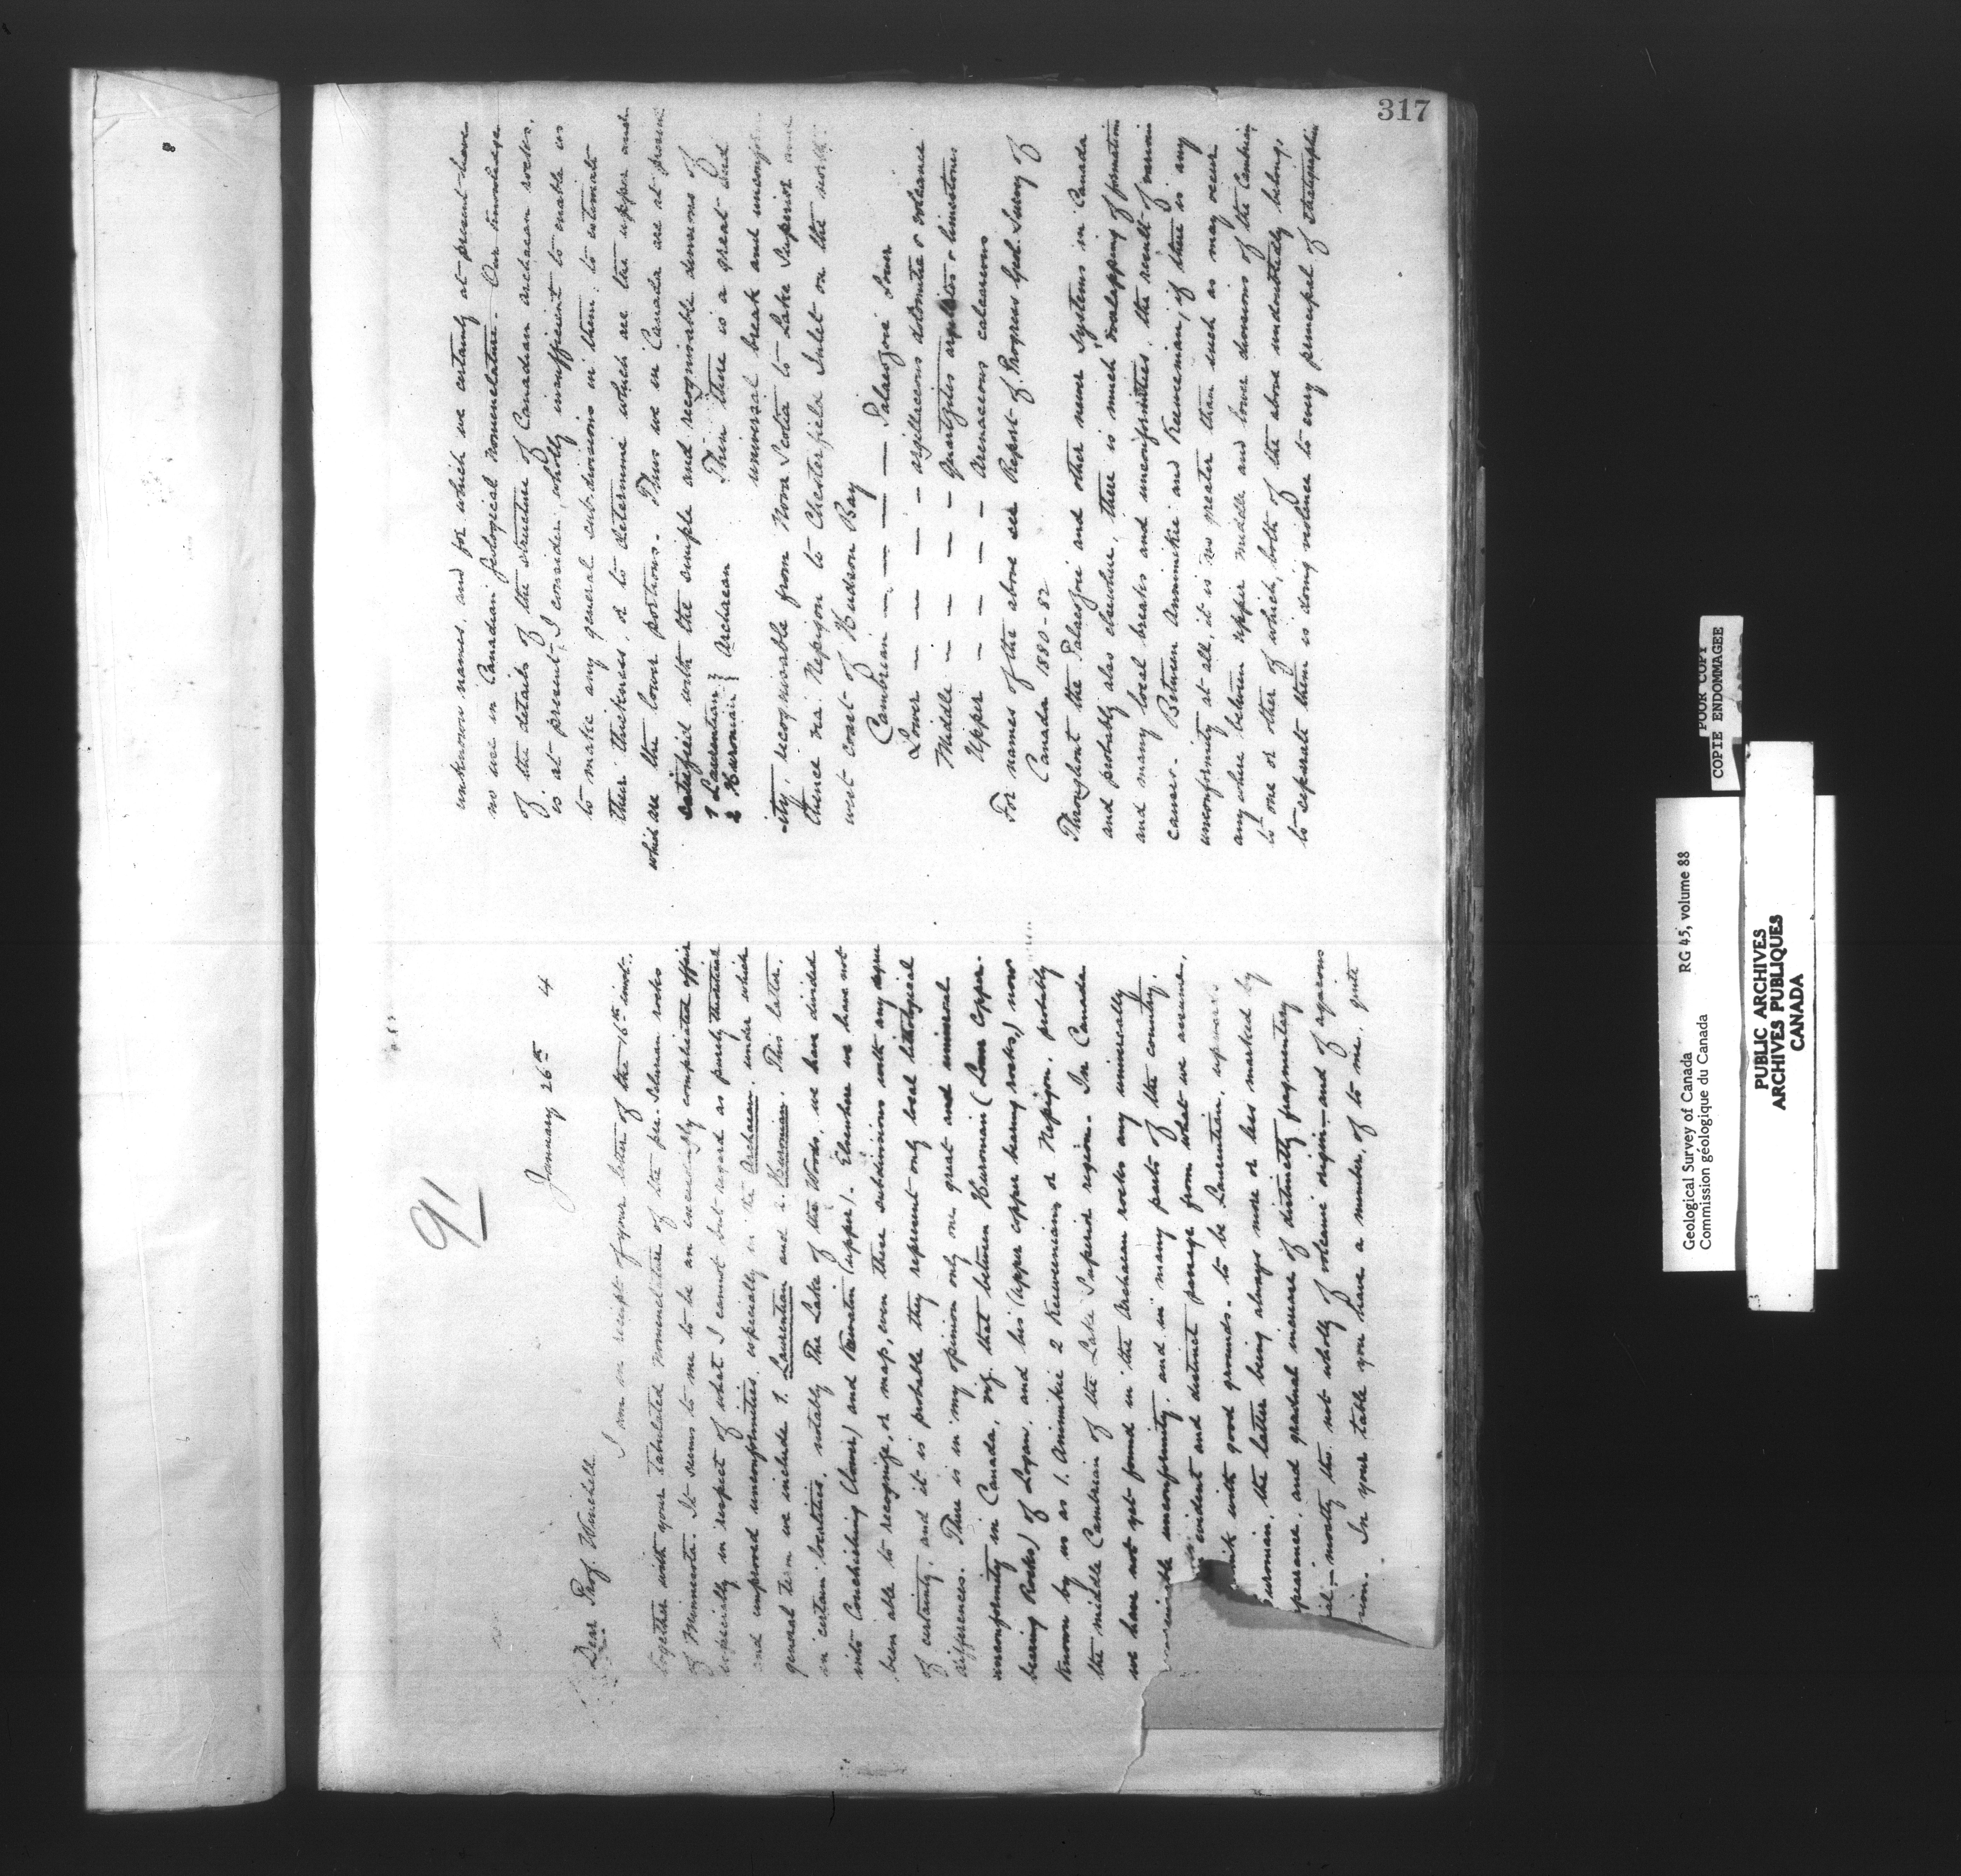 317
91
January 26th 4
Dear Prof. Winchell
I am in receipt of your letter of the 16th inst.
together with your tabulated nomenclature of the pre-Silurian rocks
of Minnesota. It seems to me to be an exceedingly complicated affair
especially in respect of what I cannot but regard as purely theoretical
and unproved unconformities, especially in the Archaean, under which
general term we include 1. Laurentian and 2. Huronian. This later,
in certain localities, notably The Lake of the Woods, we have divided
into Couchiching (lower) and Keewatin (upper). Elsewhere we have not
been able to recognize, or map, even these subdivisions with any degree
of certainty, and it is probable they represent only local lithological
differences. There is in my opinion only one great and universal
unconformity in Canada, viz. that between Huronian (Lower Copper-
bearing Rocks) of Logan, and his (upper copper bearing rocks,) now
known by us as 1. Animikie 2 Keweenian or Nepigon, probably
the middle Cambrian of the Lake Superior region. In Canada
we have not yet found in the Archaean rocks any universally
unconformity, and in many parts of the country,
evident and distinct passage from what we assume,
with good grounds, to be Laurentian, upwards
uronian, the latter being always more or less marked by
pearance, and gradual increase of distinctly fragmentary
ial - mostly tho. not wholly of volcanic origin - and of aqueous
In your table you have a number, of to me, quite
unknown names, and for which we certainly at present have
no use in Canadian geological nomenclature. Our knowledge
of the details of the structure of Canadian archaean rocks,
is at present, I consider, wholly insufficient to enable us
to make any general sub-divisions in them; to estimate
their thickness, or to determine which are the upper and
which are the lower portions. Thus we in Canada are at present
satisfied with the simple and recognisable divisions of
1 Laurentian } Archaean Then there is a great and
2 Huronian } universal break and unconform
-ity, recognisable from Nova Scotia to Lake Superior and
thence via Nepigon to Chesterfield Inlet on the north
west coast of Hudson Bay
Cambrian — — — — Palaeozoic Lower
Lower — — — — argillaceous dolomitic & volcanic
Middle — — — — quartzites argillites & limestones
Upper — — — — Arenaceous calcareous
For names of the above see Report of Progress Geol. Survey of
Canada 1880-82
Throughout the Palaeozoic and other newer systems in Canada
and probably also elsewhere, there is much overlapping of formations
and many local breaks and unconformities, the result of various
causes. Between Animikie and Keweenian, if there is any
unconformity at all, it is no greater than such as may occur
any where between upper middle and lower divisions of the Cambrian
to one or other of which, both of the above undoubtedly belong,
to separate them is doing violence to every principal of stratigraphic
Geological Survey of Canada RG 45, volume 88
Commission géologique du Canada
POOR COPY
COPIE ENDOMMAGEE
PUBLIC ARCHIVES
ARCHIVES PUBLIQUES
CANADA